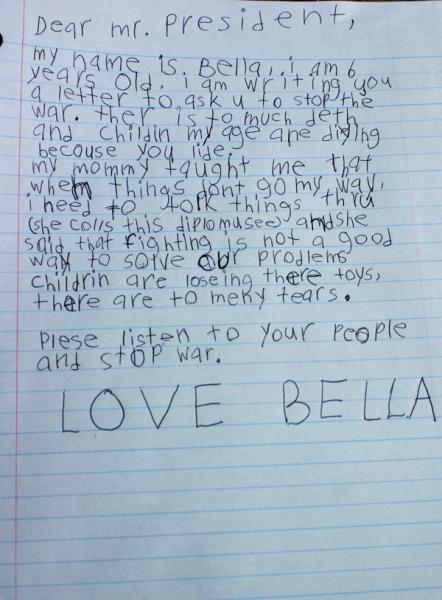 Dear mr. President,
my name is Bella, i am 6
years old. i am writing you
a letter to ask u to stop the
war. ther is to much deth
and childin my age are diying
becouse you lide.
my mommy taught me that
when things dont go my way,
i need to tolk things thru
(she colls this diplomusee) and she
said that fighting is not a good
way to solve our problems
childrin are loseing there toys,
there are to meny tears.
Plese listen to your people
and stop war.
LOVE BELLA